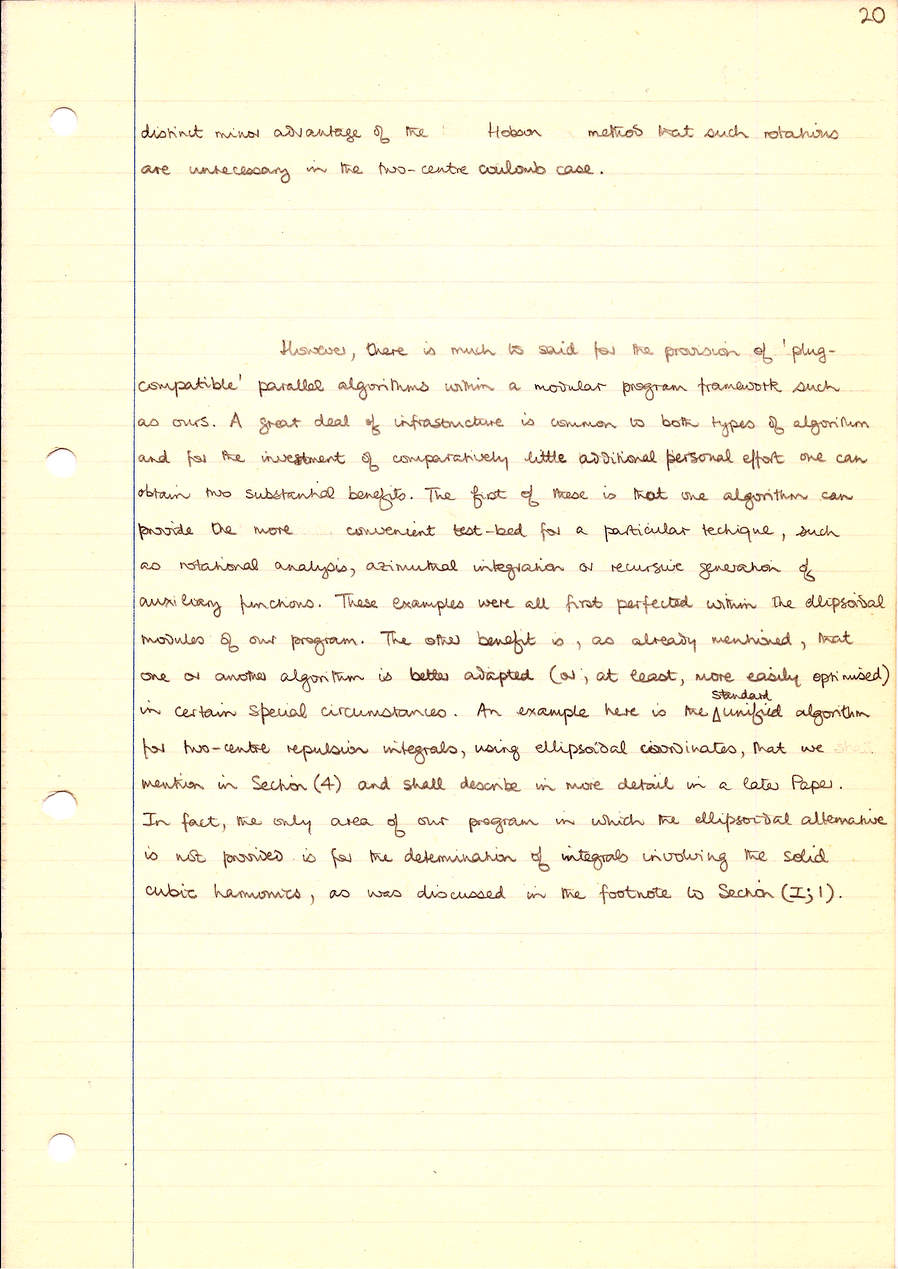 20
distinct minor advantage of the Hobson method that such rotations
are unnecessary in the two-centre coulomb case.
However, there is much to said for the provision of 'plug-
compatible' parallel algorithms within a modular program framework such
as ours. A great deal of infrastructure is common to both types of algorithm
and for the investment of comparatively little additional personal effort one can
obtain two substantial benefits. The first of these is that one algorithm can
provide the more convenient test-bed for a particular techique, such
as rotational analysis, azimuthal integration or recursive generation of
auxiliary functions. These examples were all first perfected within the ellipsoidal
modules of our program. The other benefit is, as already mentioned, that
one or another algorithm is better adapted (or, at least, more easily optimised)
standard
in certain special circumstances. An example here is the unified algorithm
for two-centre repulsion integrals, using ellipsoidal coordinates, that we shall
mention in Section (4) and shall describe in more detail in a later Paper.
In fact, the only area of our program in which the ellipsoidal alternative
is not provided is for the determination of integrals involving the solid
cubic harmonics, as was discussed in the footnote to Section (I;1).